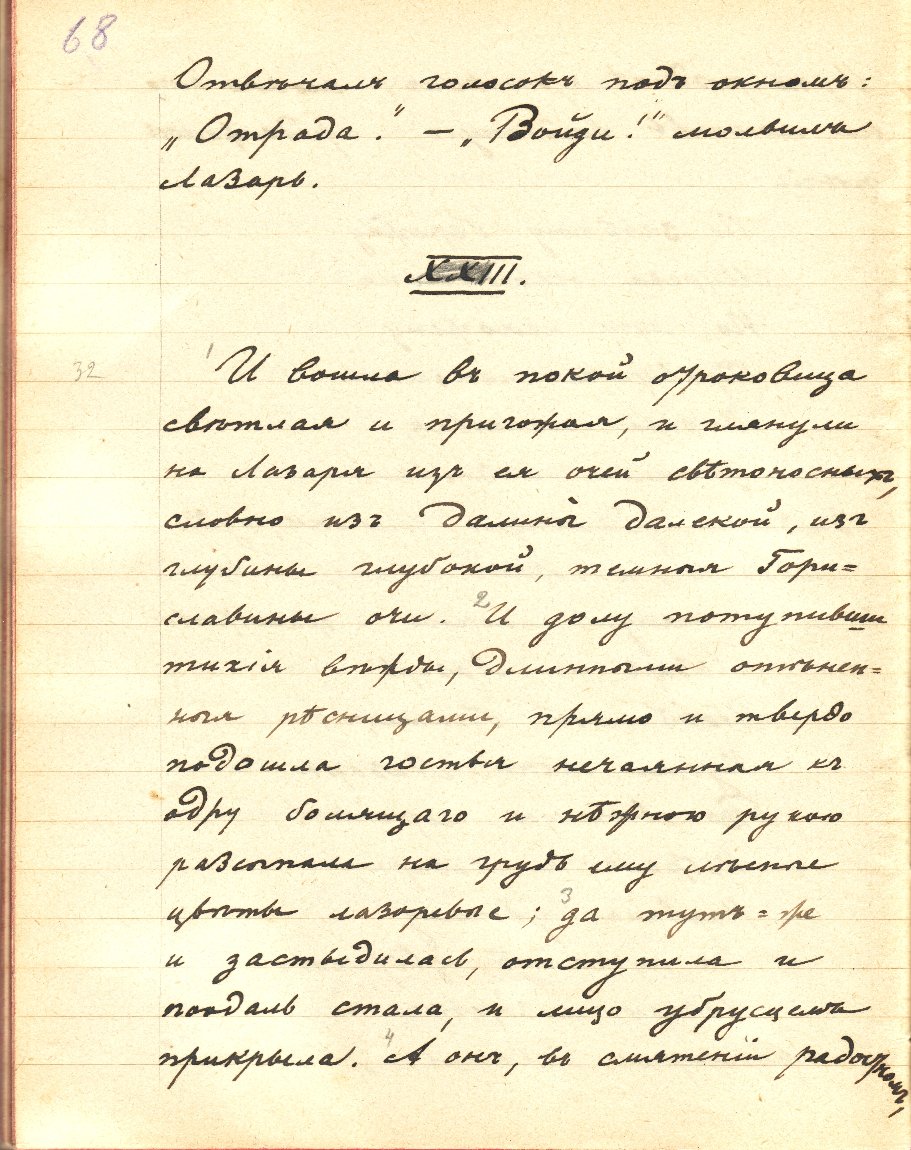 68
Отвѣчалъ голосокъ подъ окномъ:
„Отрада." — „Войди!" молвилъ
Лазарь.
XXIII.
32
1 И вошла въ покой отроковица
свѣтлая и пригожая, и глянули
на Лазаря изъ ея очей свѣтоносныхъ,
словно изъ далины далекой, изъ
глубины глубокой, темныя Гори=
славины очи. 2 И долу потупивши
тихія вѣжды, длинными отѣнен=
ныя рѣсницами, прямо и твердо
подошла гостья нечаянная къ
одру болящаго и нѣжною рукою
разсыпала на грудь ему лѣсные
цвѣты лазоревые; 3 да тутъ=же
и застыдилась, отступила и
поодаль стала, и лицо убрусцемъ
прикрыла. 4 А онъ, въ смятеніи радостномъ,